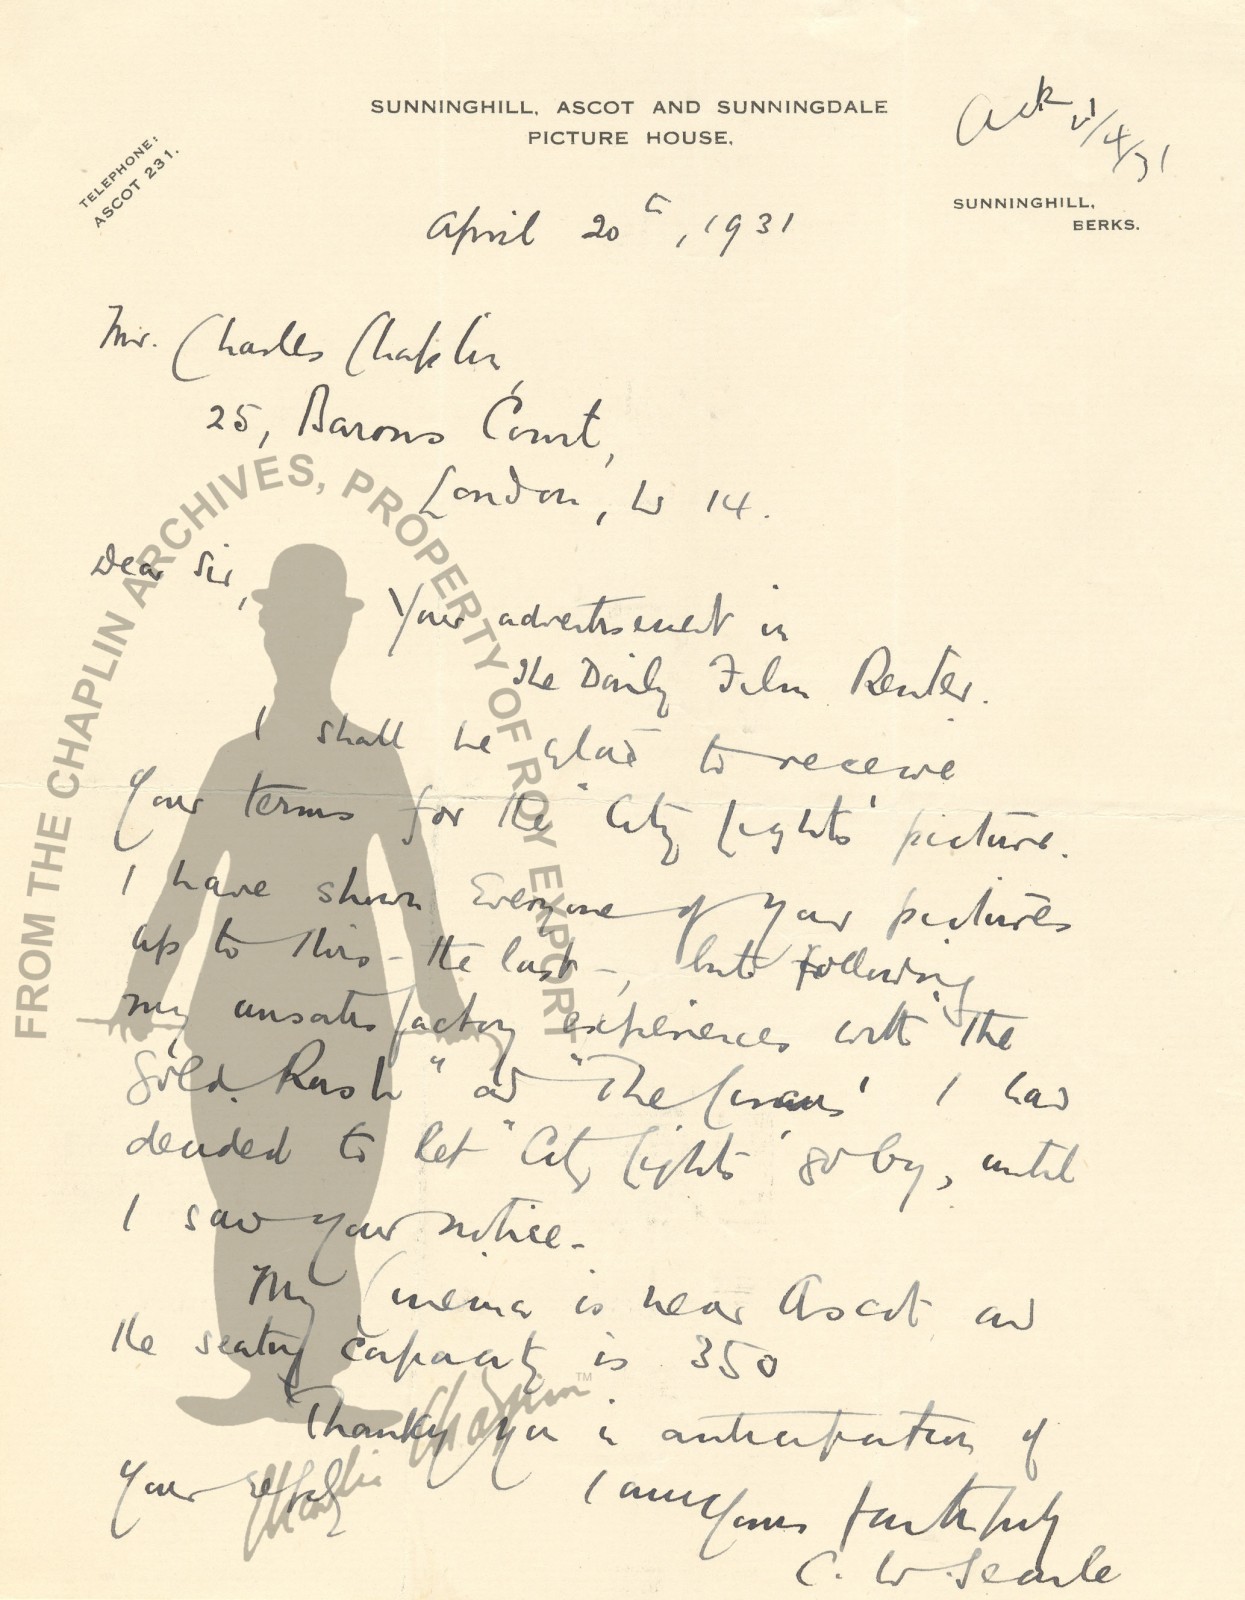 SUNNINGHILL, ASCOT AND SUNNINGDALE
PICTURE HOUSE.
TELEPHONE:
ASCOT 231.
Ack 21/4/31
SUNNINGHILL,
BERKS.
April 20th, 1931
Mr. Charles Chaplin,
25, Barons Court,
London, W 14.
Dear Sir,
Your advertisement in
The Daily Film Renter.
I shall be glad to receive
your terms for the "City Lights" picture.
I have shown everyone of your pictures
up to this - the last -, but following
my unsatisfactory experiences with "The
Gold Rush" and "The Circus" I had
decided to let "City Lights" go by, until
I saw your notice.
My Cinema is near Ascot and
the seating capacity is 350
Thanking you in anticipation of
your reply
I am
Yours faithfully
C. W. Searle
FROM THE CHAPLIN ARCHIVES, PROPERTY OF ROY EXPORT
Charlie Chaplin™